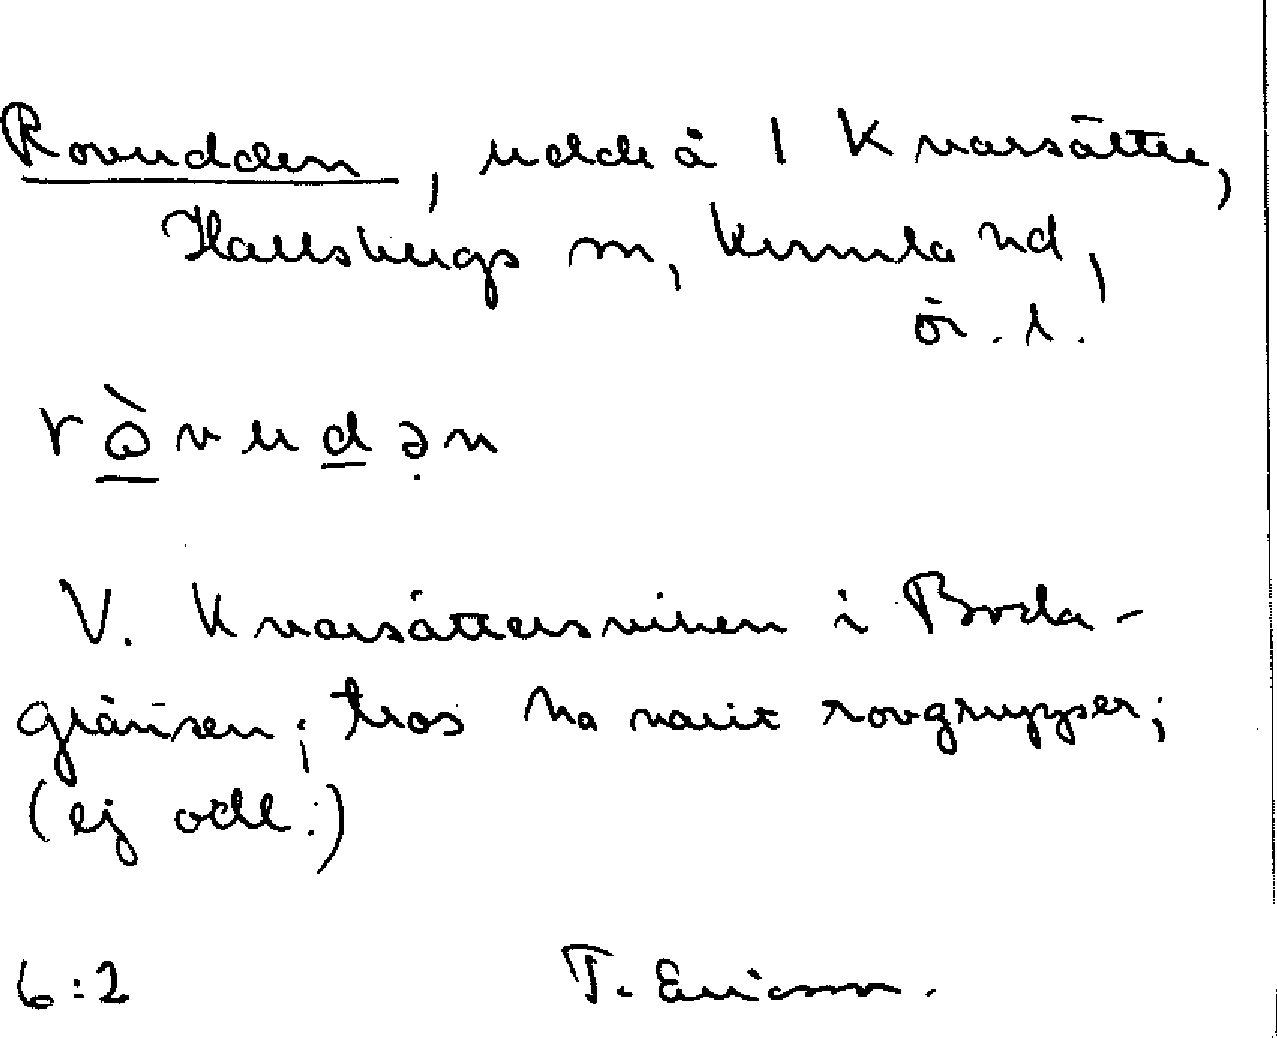 Rovudden, udde å 1 Kvarsätter,
Hallsbergs sn, Kumla hd,
Ör. l.
rò̱vuḏə̣n
V. Kvarsättersviken i Boda-
gränsen; tros ha varit rovgrupper;
(ej odl.:)
6:2 T. Ericsson.